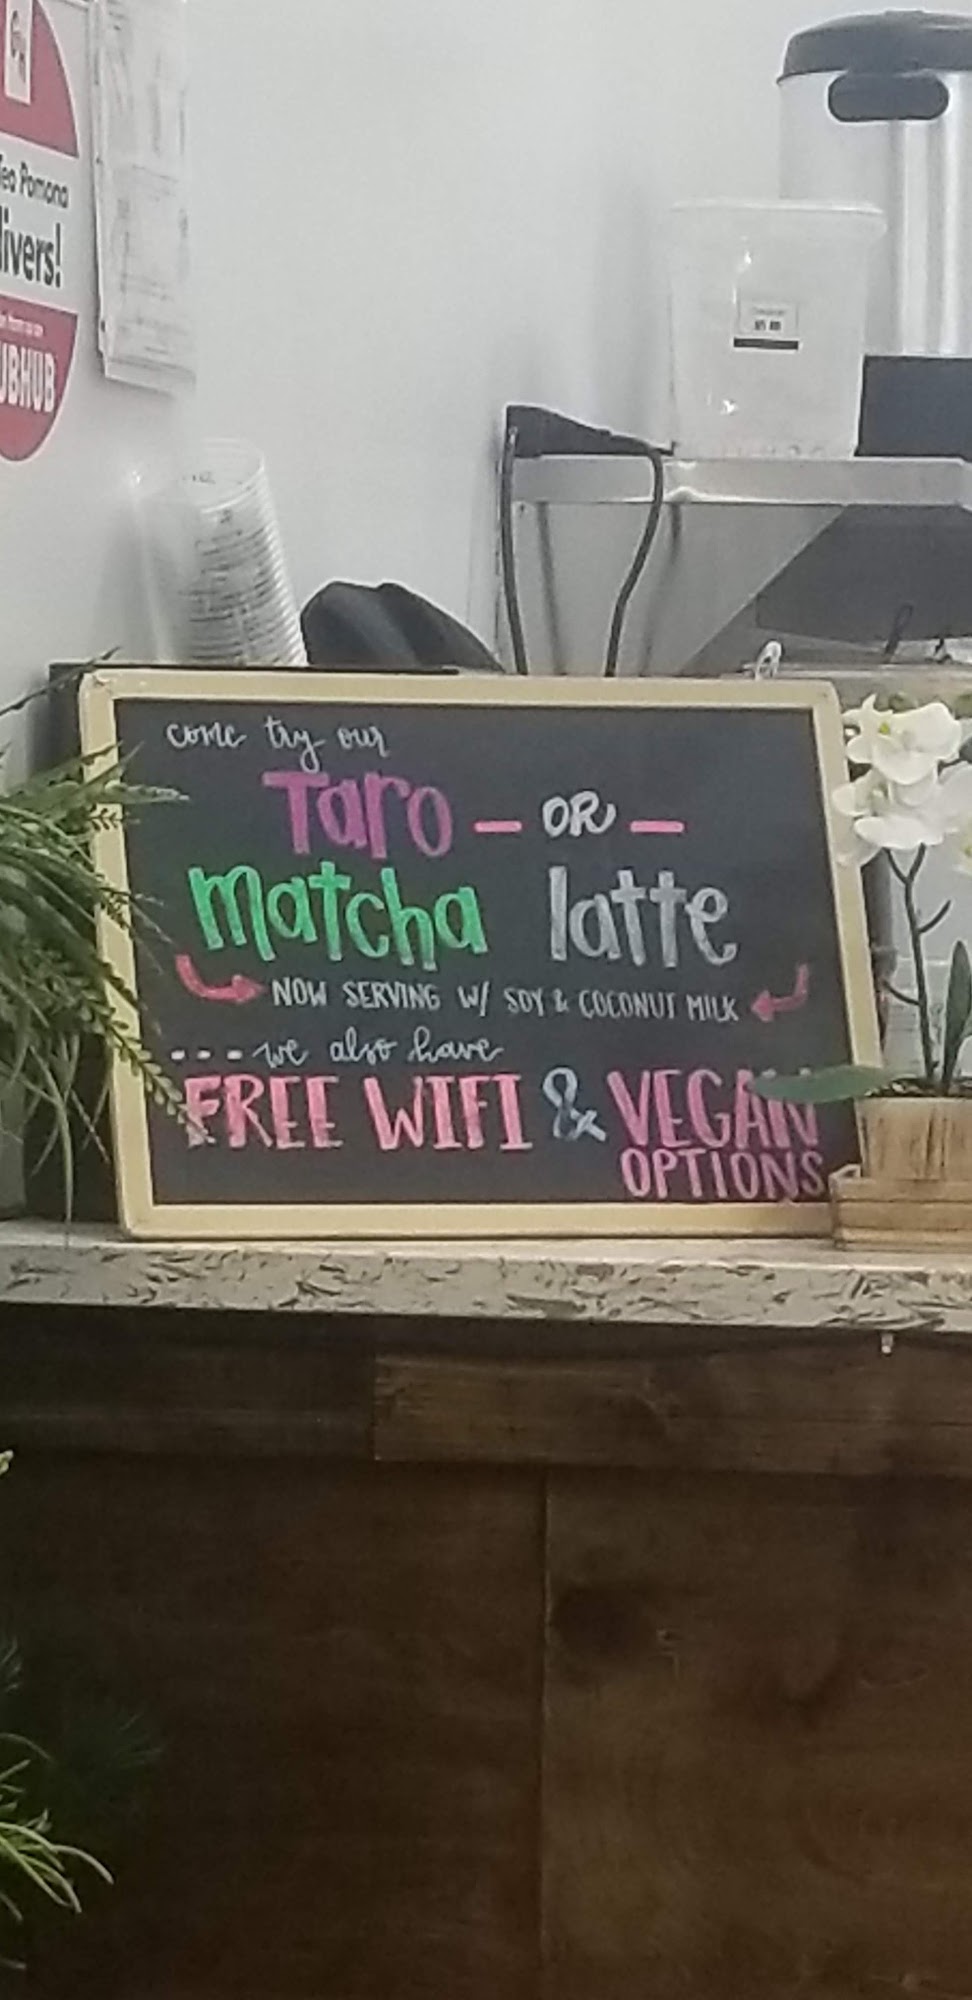 Tea Pomona
livers!
UBHUB
come try our
Taro - OR -
matcha latte
NOW SERVING W/ SOY & COCONUT MILK
... we also have
FREE WIFI & VEGAN
OPTIONS